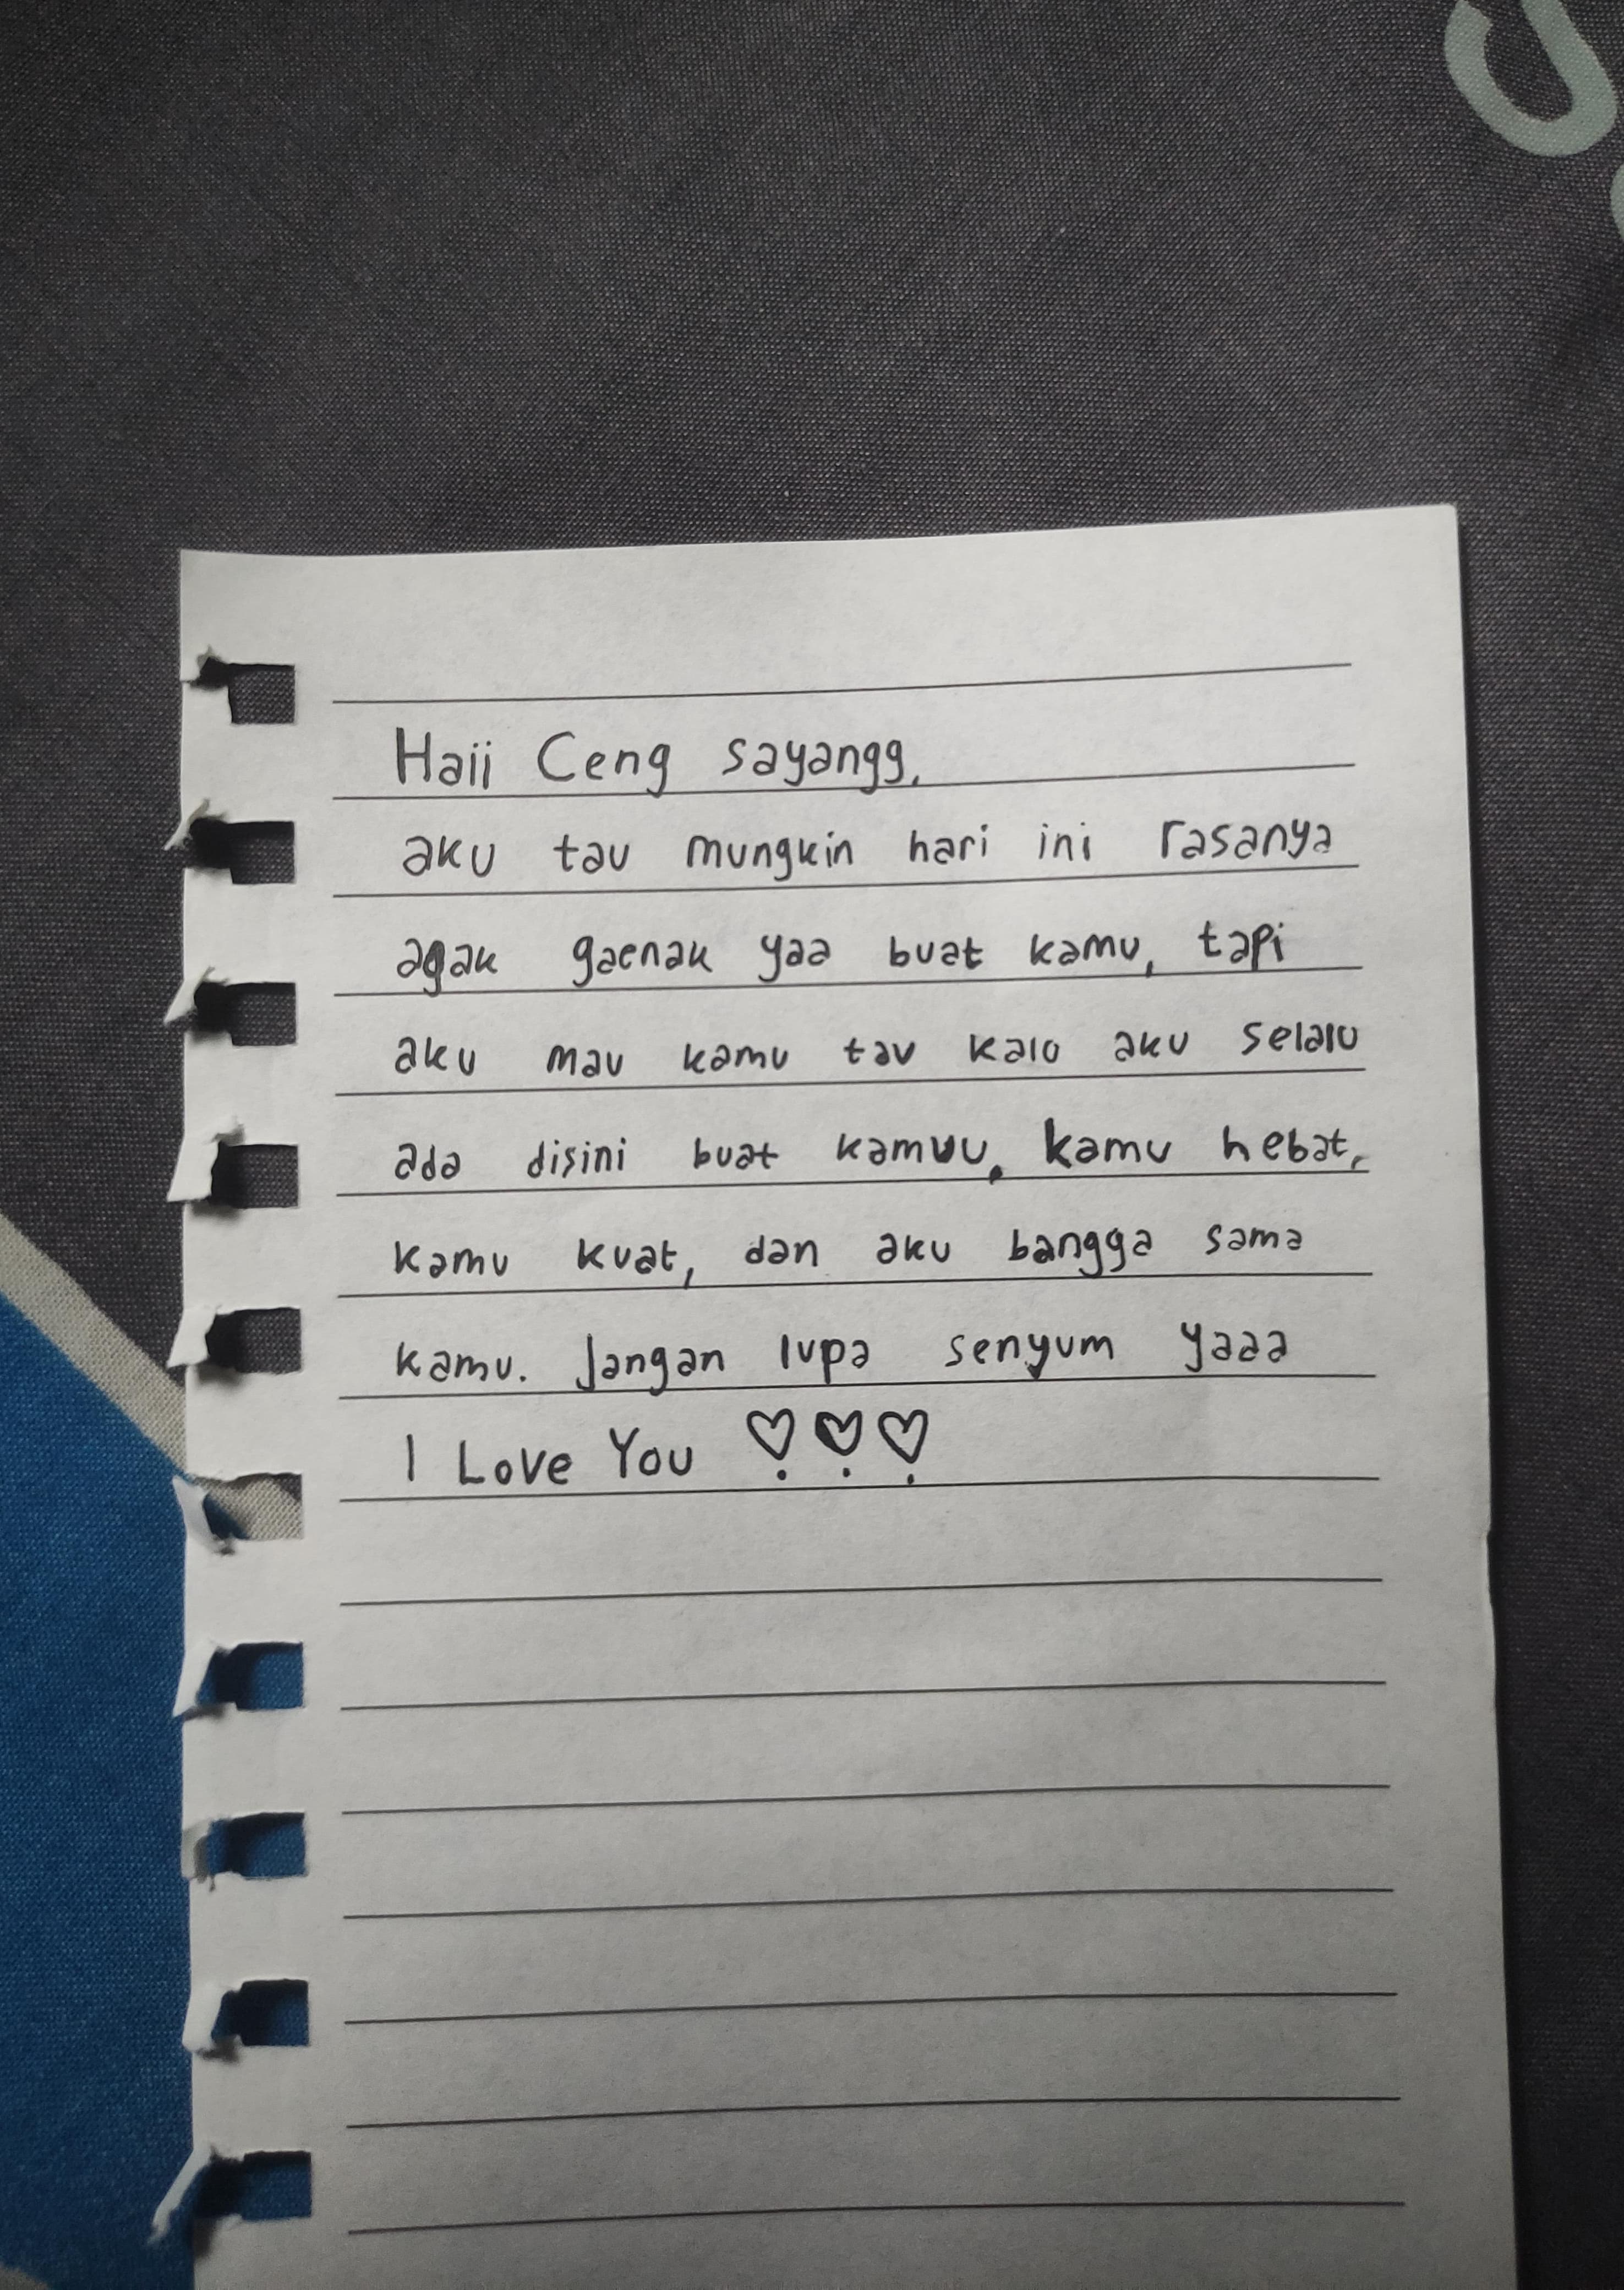 Haii Ceng sayangg,
aku tau mungkin hari ini rasanya
agak gaenak yaa buat kamu, tapi
aku mau kamu tau kalo aku selalu
ada disini buat kamuu. kamu hebat,
kamu kuat, dan aku bangga sama
kamu. Jangan lupa senyum yaaa
I Love You ♡♡♡